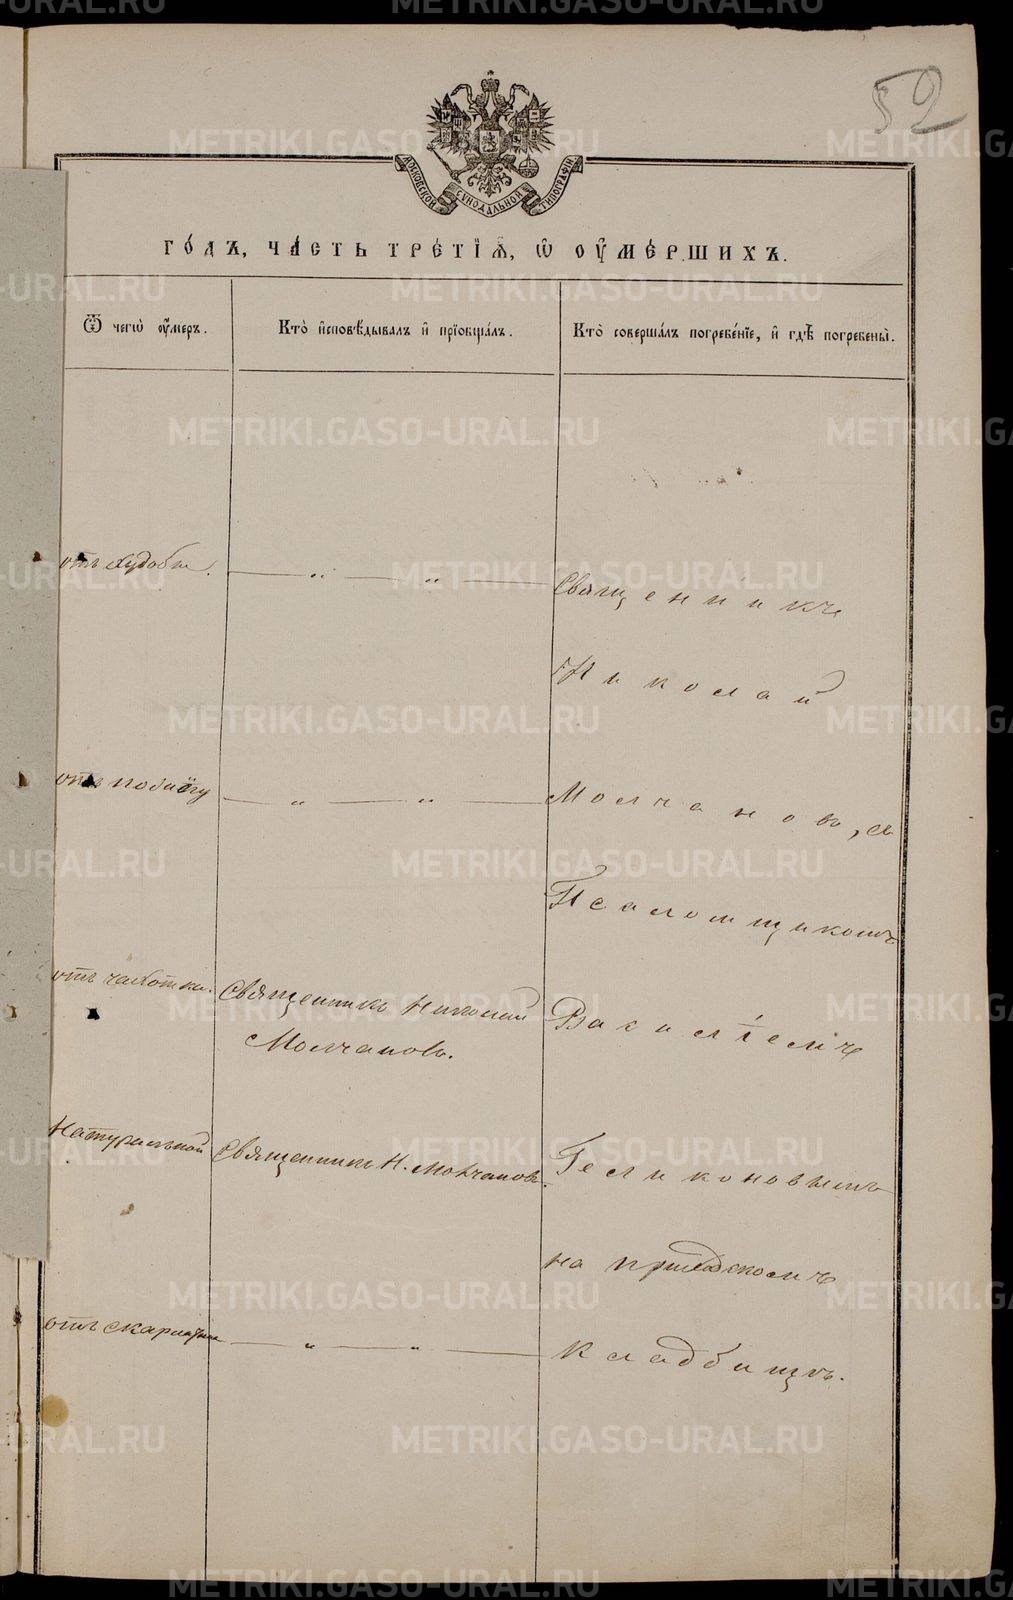 52
МОСКОВСКОЙ СѴНОДАЛЬНОЙ ТИПОГРАФІИ
ГО́ДЪ, ЧА́СТЬ ТРЕ́ТІѦ, Ѡ҆ ОУ҆МЕ́РШИХЪ.
Ѿ чегѡ̀ оу҆́меръ.
Кто̀ и҆сповѣ́дывалъ и҆ прїобща́лъ.
Кто̀ соверша́лъ погребе́нїе, и҆ гдѣ̀ погребены̀.
отъ худобы.
Священникъ
Николай
отъ
Молчановъ, съ
Псаломщикомъ
отъ чахотки.
Священникъ Николай
Молчановъ.
Василіемъ
Натуральной
Священникъ Н. Молчановъ.
Геликоновымъ
на приходскомъ
отъ скарлатины
кладбищѣ.
METRIKI.GASO-URAL.RU